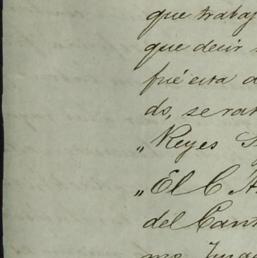 que trabaj
que decir
fué esta a
do, se rat
„Reyes
„El C
del Can
mo